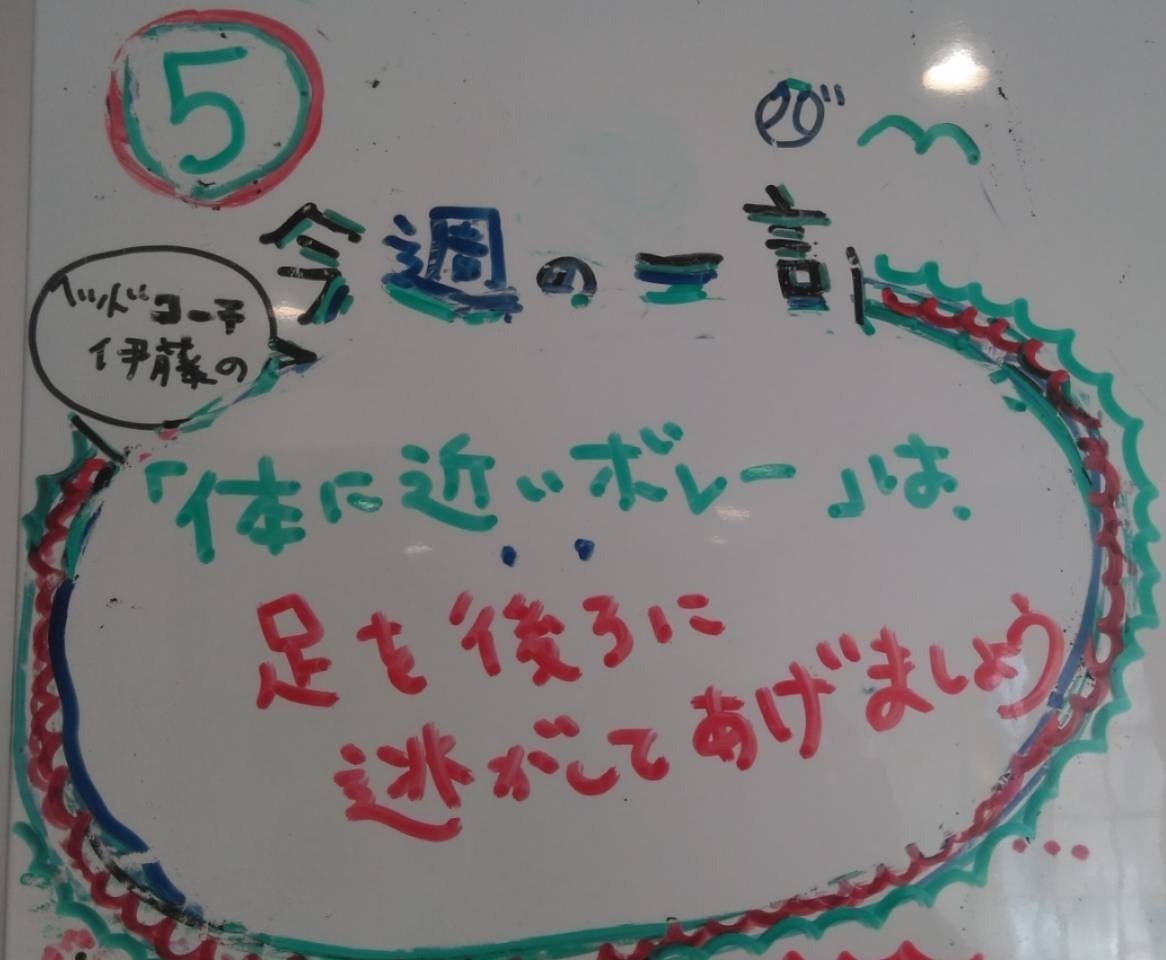 5
今週の一言
ヘッドコーチ
伊藤の
「体に近いボレー」は、
足を後ろに
逃がしてあげましょう